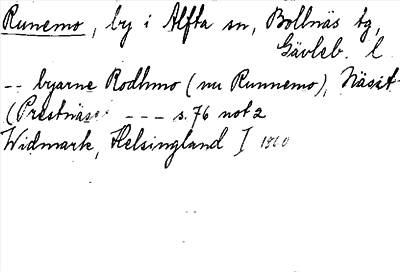 Runemo, by i Alfta sn, Bollnäs tg,
Gävleb. l
-- byarne Rodhmo (nu Runnemo), Näsit-
(Prestnäs --- s. 76 not 2
Widmark, Helsingland I 1860